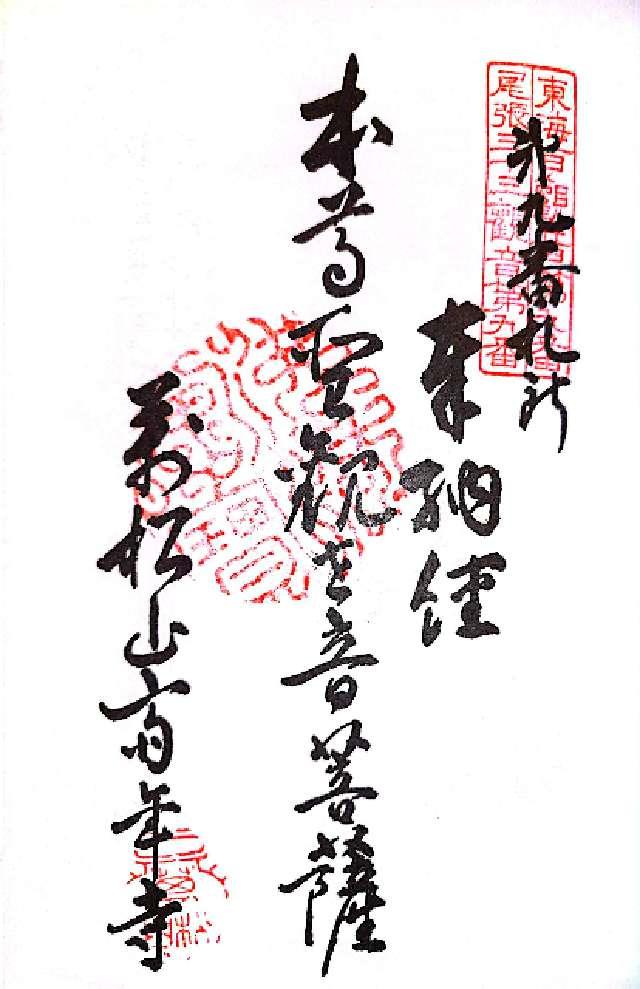 尾張三十三観音第九番
第九番札所
奉納経
本尊聖観世音菩薩
萬松山斉年寺